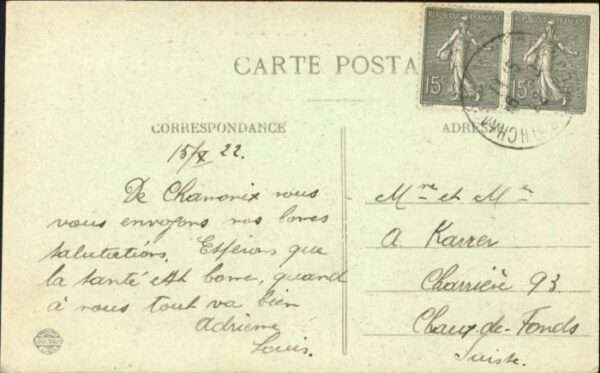 RÉPUBLIQUE FRANÇAISE RÉPUBLIQUE FRANÇAISE
15c 15c
CARTE POSTA
CORRESPONDANCE
ADRESSE
15/X 22.
De Chamonix nous
vous envoyons nos bonnes
salutations. Espérons que
la santé est bonne, quand
à nous tout va bien
Adrienne
Louis.
Mme et Mr
A Karrer
Charrière 93
Chaux-de-Fonds
Suisse.